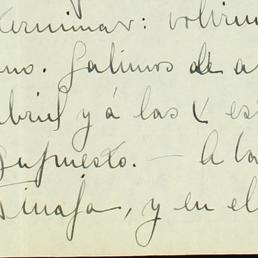 terminar: volvim
no. Salimos de a
abril y á las X es
Supuesto. — A la
Tinaja, y en el